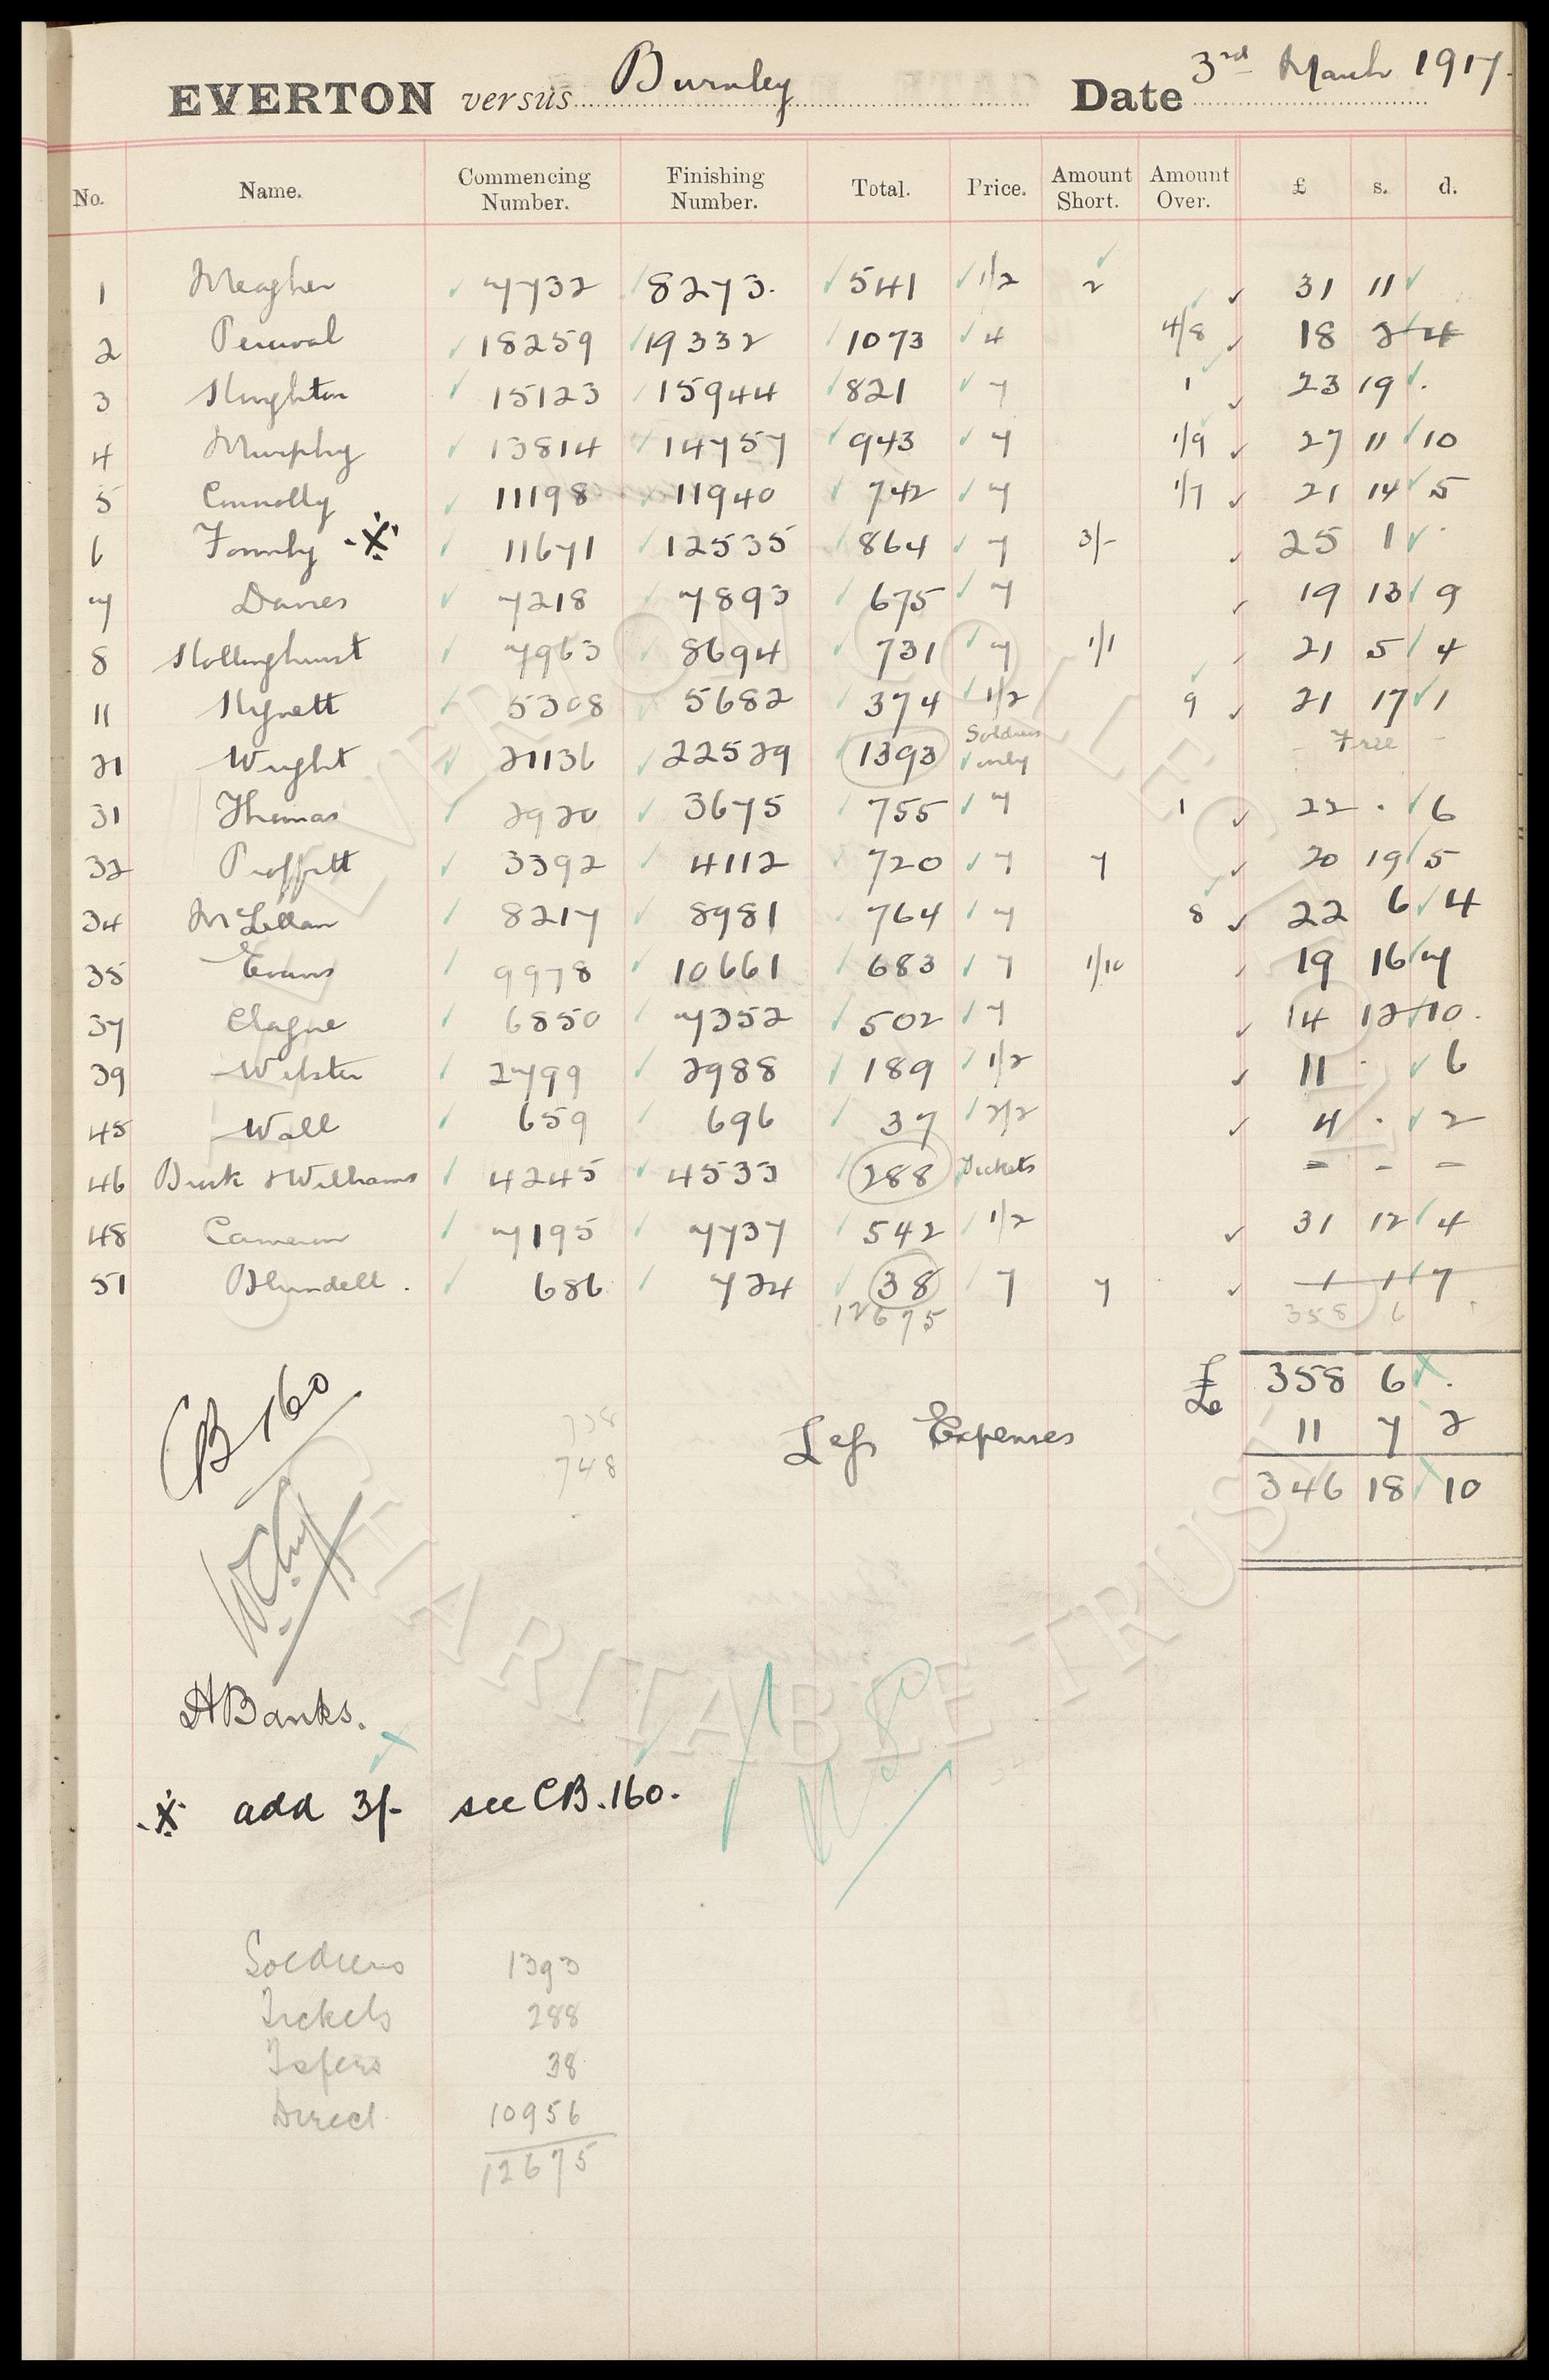 EVERTON versus Burnley Date 3rd March 1917.
No. Name. Commencing Number. Finishing Number. Total. Price. Amount Short. Amount Over. £ s. d.
1 Meagher 7732 8273. 541 1/2 2 31 11
2 Percival 18259 19332 1073 4 4/8 18 2 4
3 Houghton 15123 15944 821 7 1 23 19 .
4 Murphy 13814 14757 943 7 1/9 27 11 10
5 Connolly 11198 11940 742 7 1/7 21 14 5
6 Formby ※ 11671 12535 864 7 3/- 25 1 .
7 Davies 7218 7893 675 7 19 13 9
8 Hollinghurst 7963 8694 731 7 1/1 21 5 4
11 Hignett 5308 5682 374 1/2 9 21 17 1
21 Wright 21136 22529 1393 Soldiers only - Free -
31 Thomas 2920 3675 755 7 1 22 . 6
32 Proffitt 3392 4112 720 7 7 20 19 5
34 McLellan 8217 8981 764 7 8 22 6 4
35 Evans 9978 10661 683 7 1/10 19 16 7
37 Clague 6850 7352 502 7 14 12 10.
39 Webster 2799 2988 189 1/2 11 . 6
45 Wall 659 696 37 2/2 4 . 2
46 Burk & Williams 4245 4533 288 Tickets = - =
48 Cameron 7195 7737 542 1/2 31 12 4
51 Blundell. 686 724 38 7 7 1 1 7
12675 358 6
£ 358 6 .
CB 160
738
Less Expenses 11 7 2
748
346 18 10
HBanks.
※ add 3/- see CB.160.
Soldiers 1393
Tickets 288
Tsfers 38
Direct 10956
12675
EVERTON COLLECTION
CHARITABLE TRUST